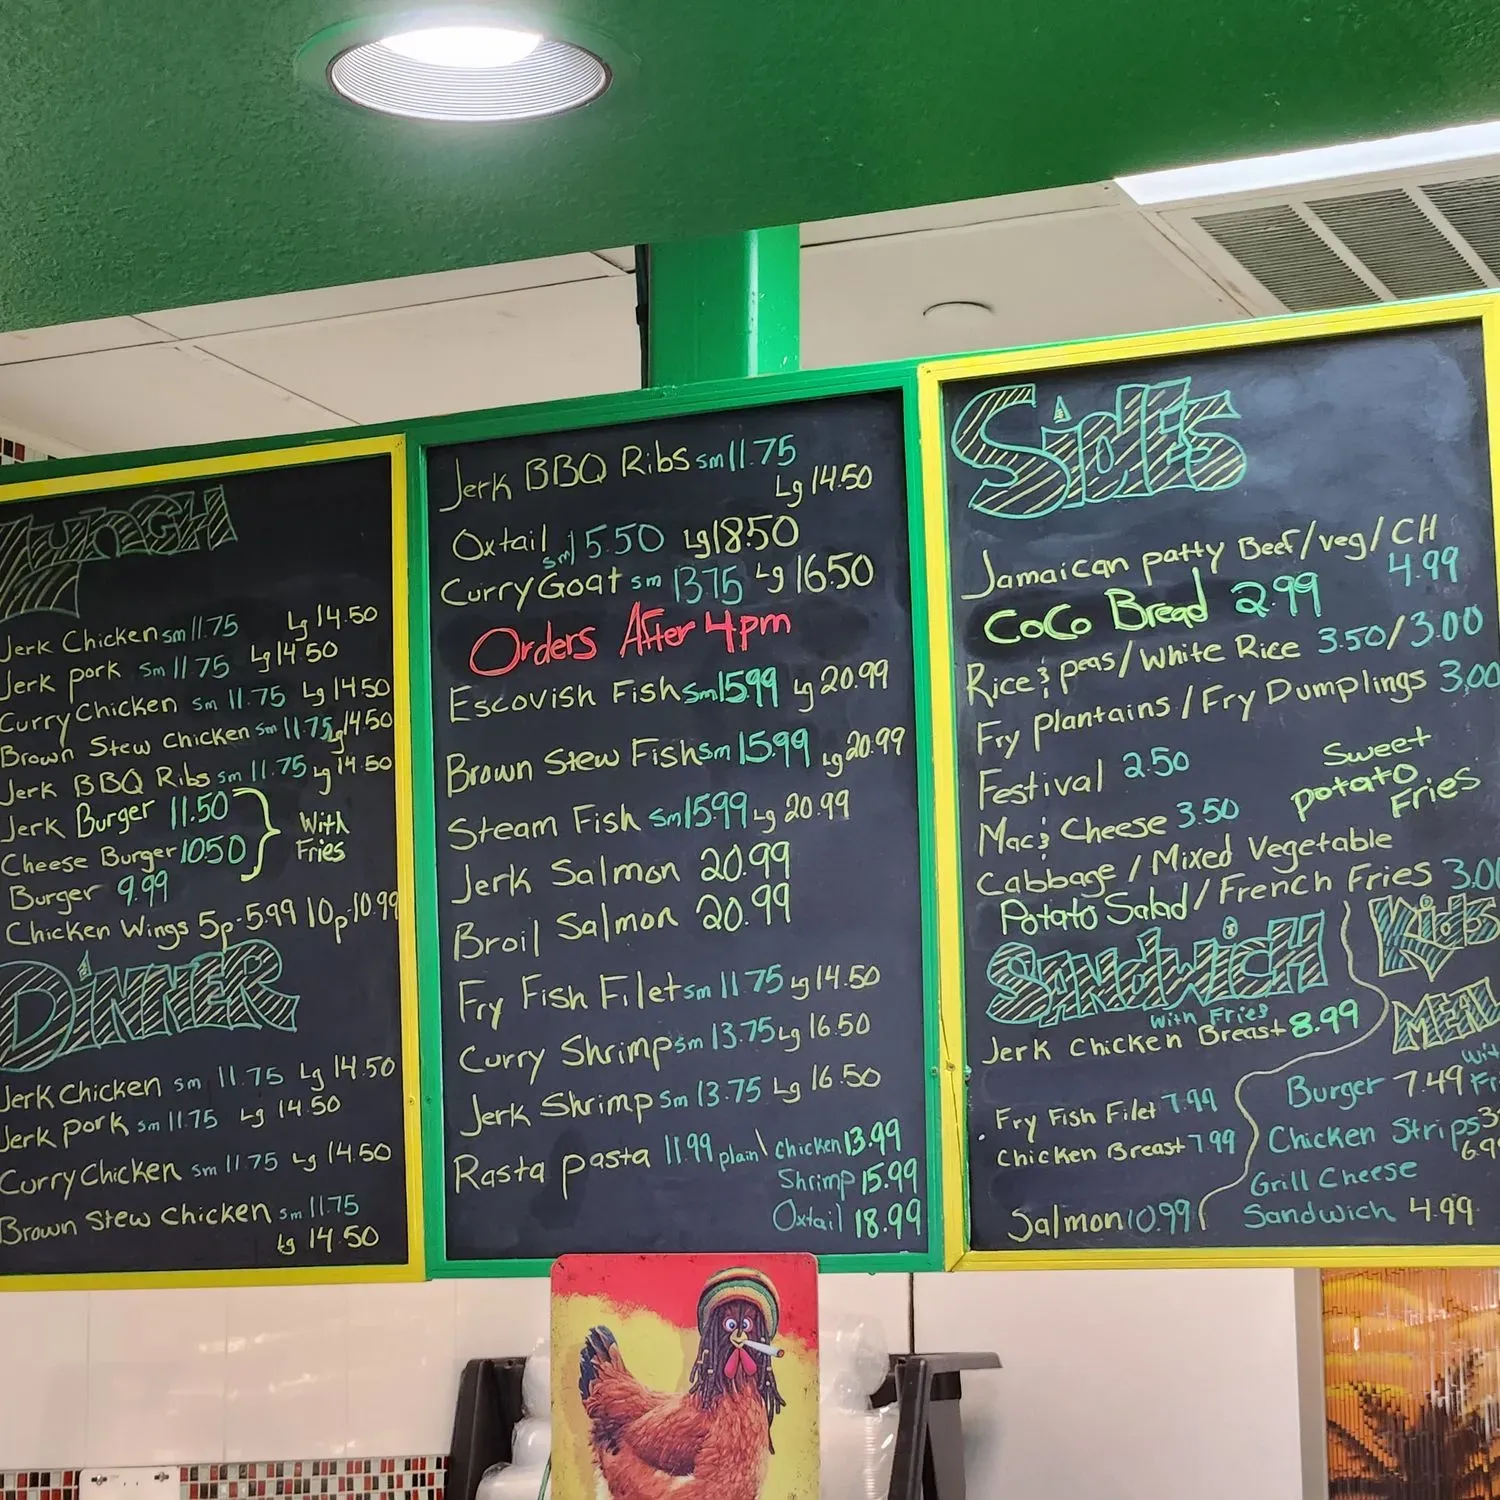 LUNCH
Jerk Chicken sm 11.75 Lg 14.50
Jerk pork sm 11.75 Lg 14.50
Curry Chicken sm 11.75 Lg 14.50
Brown Stew Chicken sm 11.75 Lg 14.50
Jerk BBQ Ribs sm 11.75 Lg 14.50
Jerk Burger 11.50
Cheese Burger 10.50
Burger 9.99
With
Fries
Chicken Wings 5p-5.99 10p-10.99
DiNNER
Jerk Chicken sm 11.75 Lg 14.50
Jerk pork sm 11.75 Lg 14.50
Curry Chicken sm 11.75 Lg 14.50
Brown Stew Chicken sm 11.75
Lg 14.50
Jerk BBQ Ribs sm 11.75
Lg 14.50
Oxtail sm 15.50 Lg 18.50
Curry Goat sm 13.75 Lg 16.50
Orders After 4pm
Escovish Fish sm 15.99 Lg 20.99
Brown Stew Fish sm 15.99 Lg 20.99
Steam Fish sm 15.99 Lg 20.99
Jerk Salmon 20.99
Broil Salmon 20.99
Fry Fish Filet sm 11.75 Lg 14.50
Curry Shrimp sm 13.75 Lg 16.50
Jerk Shrimp sm 13.75 Lg 16.50
Rasta pasta 11.99 plain\ Chicken 13.99
Shrimp 15.99
Oxtail 18.99
SidEs
Jamaican patty Beef/veg/CH
4.99
CoCo Bread 2.99
Rice & peas/White Rice 3.50/3.00
Fry plantains/Fry Dumplings 3.00
Festival 2.50
Sweet
potato
Fries
Mac & Cheese 3.50
Cabbage/Mixed Vegetable
Potato Salad/French Fries 3.00
SANdWiCH
with Fries
Jerk Chicken Breast 8.99
Fry Fish Filet 7.99
Chicken Breast 7.99
Salmon 10.99
Kids
MEAL
Burger 7.49
Chicken Strips
Grill Cheese
Sandwich 4.99